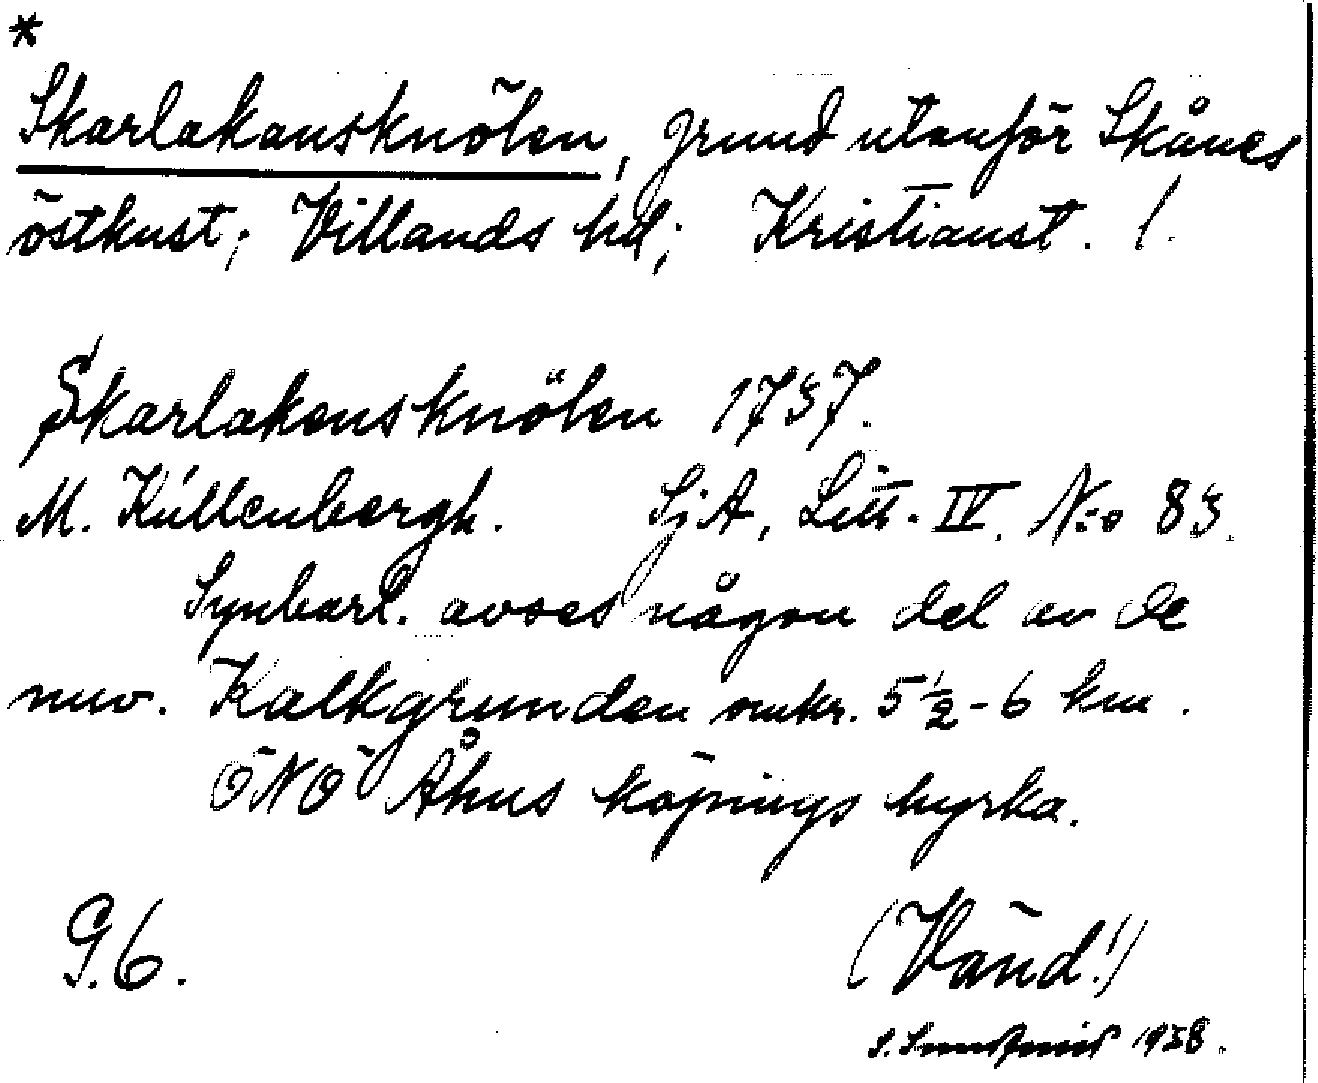 *
Skarlakansknölen, grund utanför Skånes
östkust; Villands hd; Kristianst. l.
Skarlakensknölen 1737.
M. Küllenbergh. SjA, Litt. IV. N:o 83.
Synbarl. avses någon del av de
nuv. Kalkgrunden omkr. 5 1/2 - 6 km.
ÖNÖ Åhus köpings kyrka.
G. 6. (Vänd!)
1938.